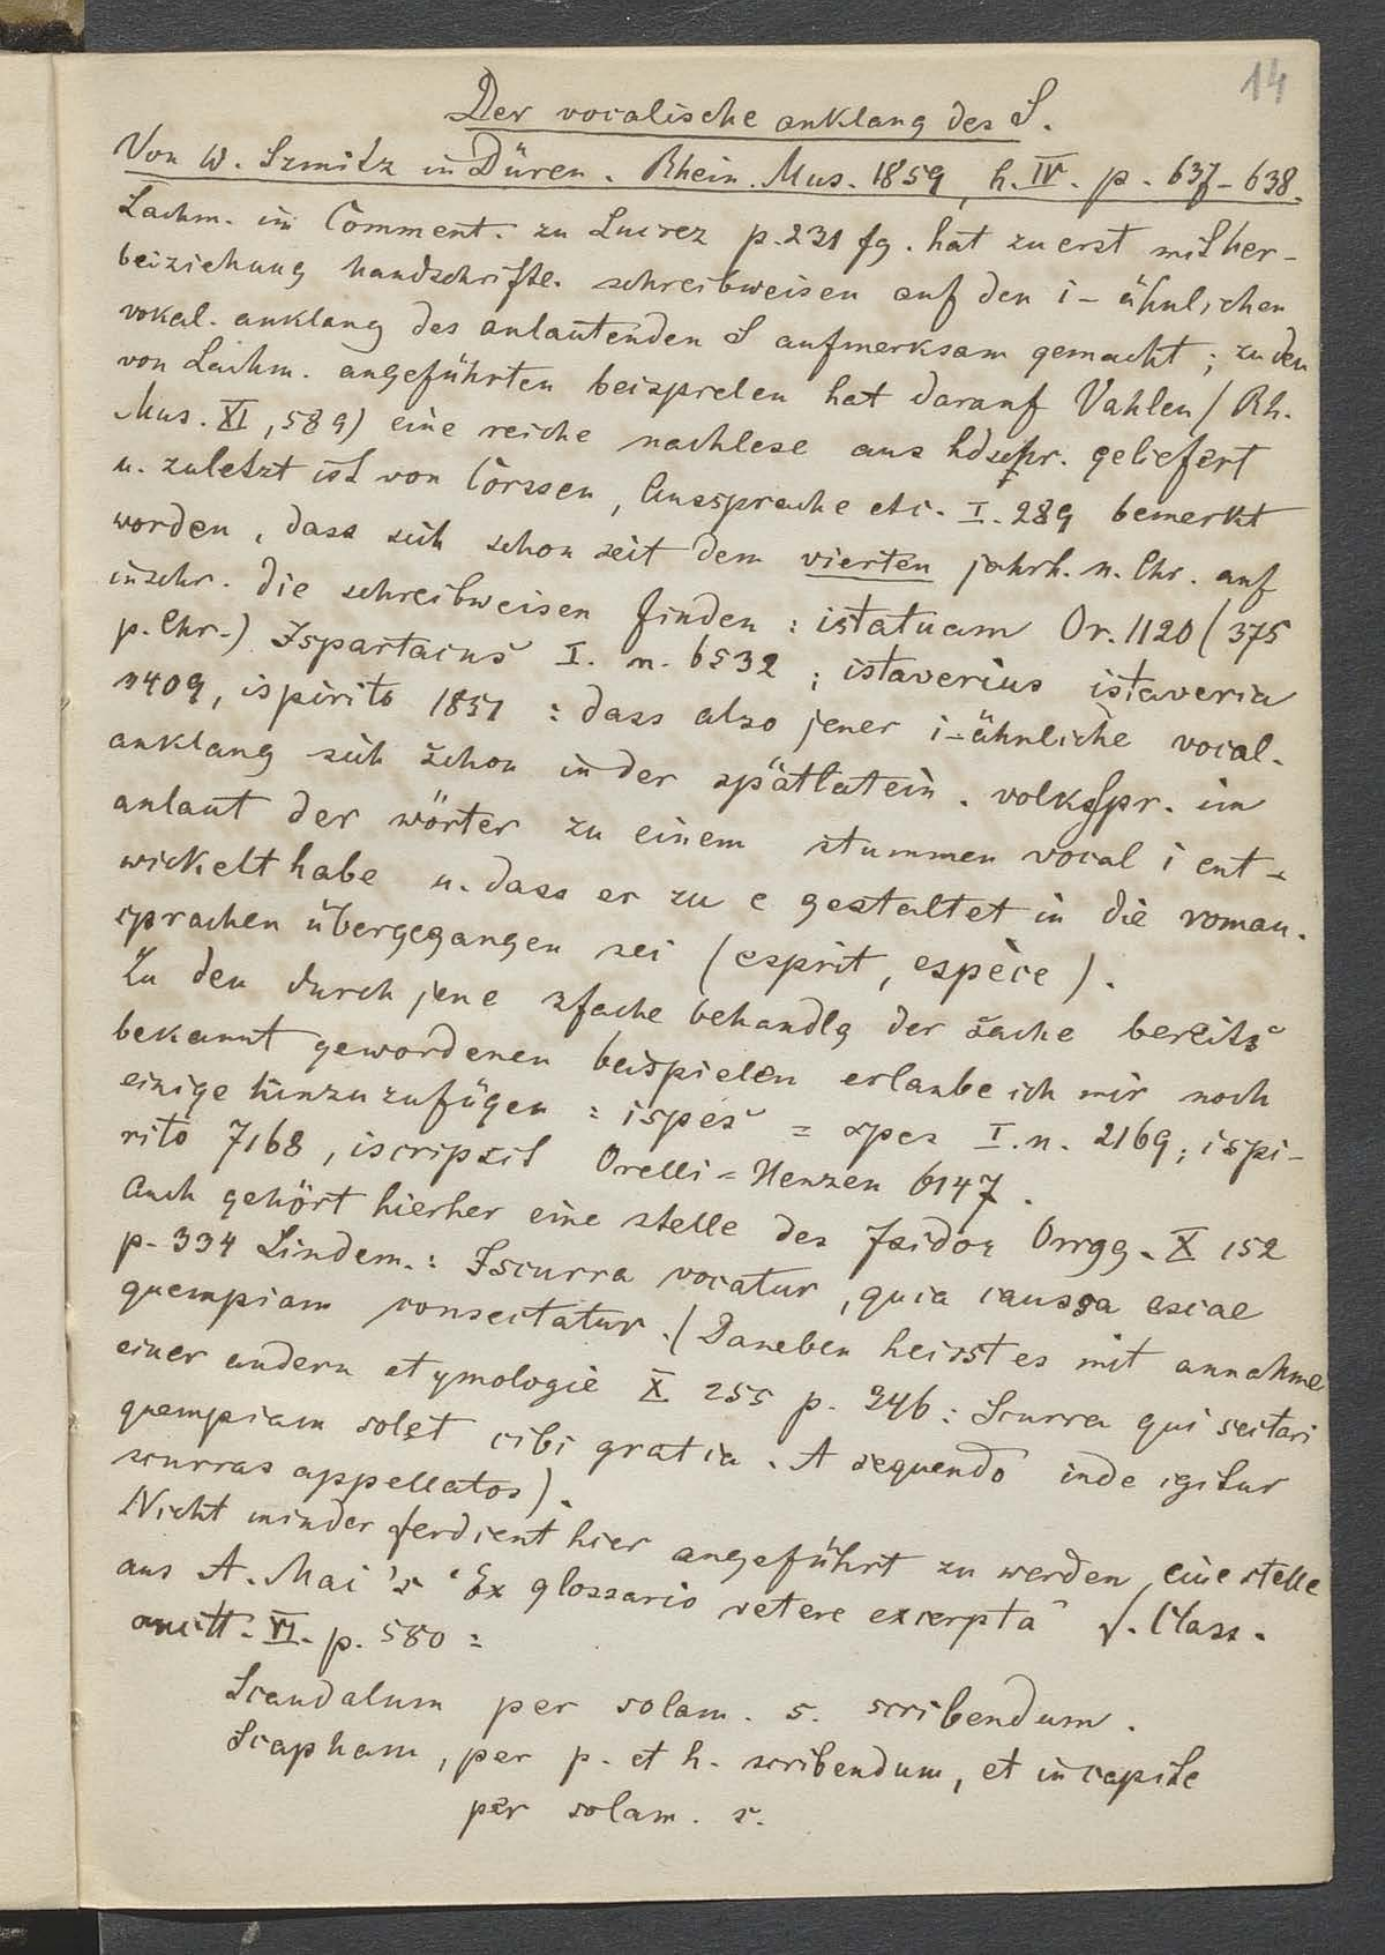 14
Der vocalische anklang des S.
Von W. Szmitz in Düren. Rhein. Mus. 1859, h. IV. p. 637-638.
Lachm. im Comment. zu Lucrez p. 231 fg. hat zuerst mit her-
beiziehung handschriftl. schreibweisen auf den i-ähnlichen
vokal. anklang des anlautenden S aufmerksam gemacht; zu den
von Lachm. angeführten beispielen hat darauf Vahlen (Rh.
Mus. XI, 589) eine reiche nachlese aus hdschr. geliefert
u. zuletzt ist von Corssen, Aussprache etc. I. 289 bemerkt
worden, dass sich schon seit dem vierten jahrh. n. Chr. auf
inschr. die schreibweisen finden: istatuam Or. 1120 (375
p. Chr.) Ispartacus I. n. 6532; istaverius istaveria
3409, ispirito 1851: dass also jener i-ähnliche vocal.
anklang sich schon in der spätlatein. volksspr. im
anlaut der wörter zu einem stummen vocal i ent-
wickelt habe u. dass er zu e gestaltet in die roman.
sprachen übergegangen sei (esprit, espèce).
Zu den durch jene 3fache behandlg der sache bereits
bekannt gewordenen beispielen erlaube ich mir noch
einige hinzuzufügen: ispes = spes I. n. 2169; ispi-
rito 7168, iscripsit Orelli=Henzen 6147.
Auch gehört hierher eine stelle des Isidor Orrgg. X 152
p. 334 Lindem.: Iscurra vocatur, quia caussa escae
quempiam consectatur. (Daneben heisst es mit annahme
einer andern etymologie X 255 p. 246: Scurra qui sectari
quempiam solet cibi gratia. A sequendo inde igitur
scurras appellatos).
Nicht minder ferdient hier angeführt zu werden eine stelle
aus A. Mai's 'Ex glossario vetere excerpta' Class.
auctt. VI. p. 580:
Scandalum per solam. s. scribendum.
Scapham, per p. et h. scribendum, et in capite
per solam. s.